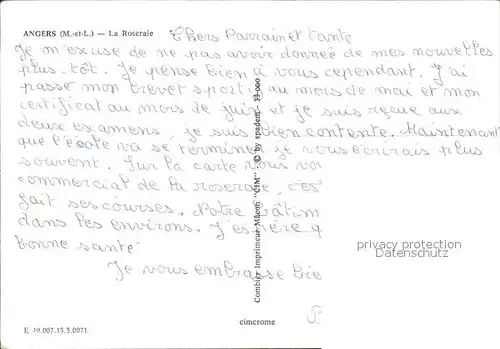 ANGERS (M.-et-L.) — La Roseraie
Chers Parrain et tante
Je m'excuse de ne pas avoir donnée de mes nouvelles
plus tôt. Je pense bien à vous cependant. J'ai
passé mon brevet sportif au mois de mai et mon
certificat au mois de juin et je suis reçue aux
deux examens, je suis bien contente. Maintenant
que l'école va se terminer je vous écrirais plus
souvent. Sur la carte vous vo
commercial de la roseraie, c'es
fait ses courses. Notre bâtim
dans les environs. J'espère q
bonne santé
Je vous embrasse bie
Combier Imprimeur Mâcon "CIM" © by spadem - 19-000
privacy protection
Datenschutz
cimcrome
E 49.007.15.3.0071